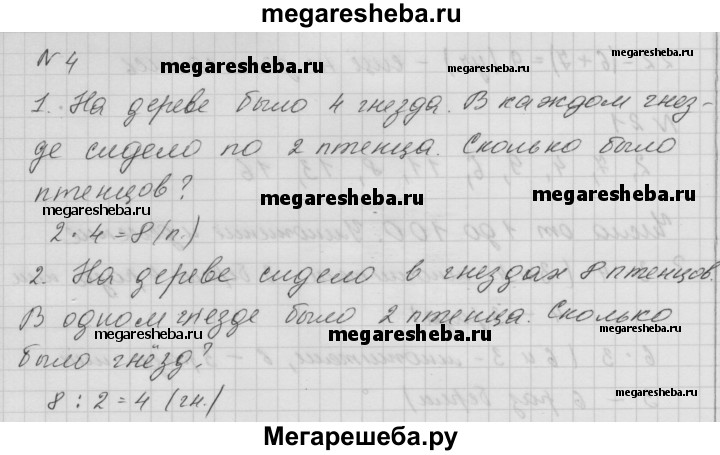 megaresheba.ru
N 4
megaresheba.ru
megaresheba.ru
1. На дереве было 4 гнезда. В каждом гнез-
де сидело по 2 птенца. Сколько было
птенцов?
megaresheba.ru
megaresheba.ru
2 : 4 = 8 (п.)
2. На дереве сидело в гнездах 8 птенцов.
В одном гнезде было 2 птенца. Сколько
megaresheba.ru
megaresheba.ru
было гнёзд?
8 : 2 = 4 (гн.)
megaresheba.ru
megaresheba.ru
Мегарешеба.ру